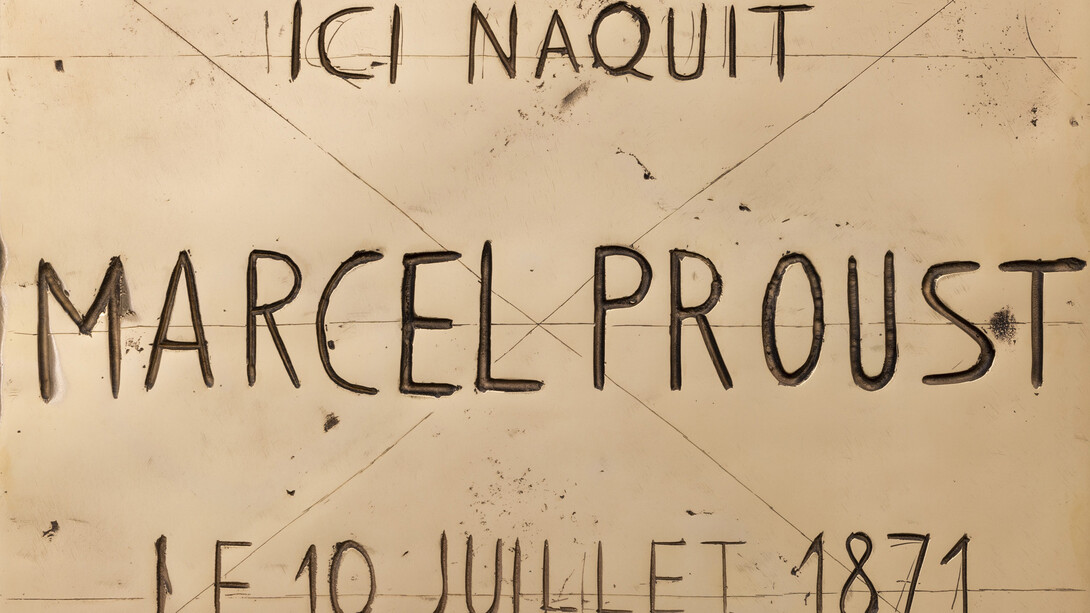 ICI NAQUIT
MARCEL PROUST
LE 10 JUILLET 1871